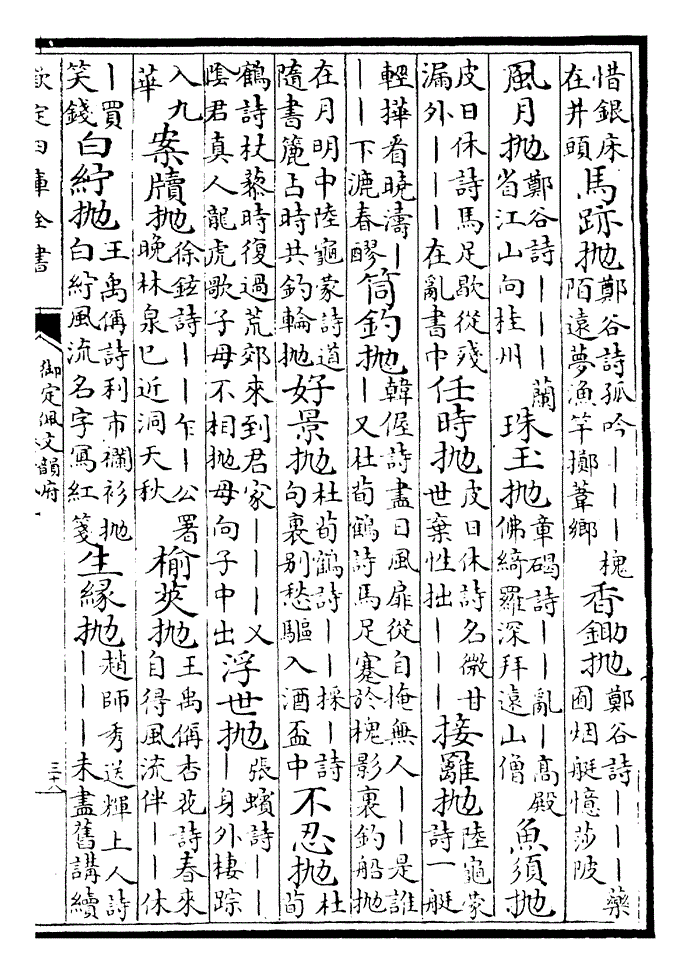 惜銀床在井頭馬跡抛鄭谷詩孤吟丨丨丨槐陌遠夢漁竿擲葦鄉香鋤抛鄭谷詩丨丨丨藥圃烟艇憶莎陂
風月抛鄭谷詩丨丨丨蘭省江山向桂州珠玉抛章碣詩丨丨亂丨髙殿佛綺羅深拜遠山僧魚須抛
皮日休詩馬足歇從殘漏外丨丨丨在亂書中任時抛皮日休詩名微甘世棄性拙丨丨丨接䍦抛陸龜蒙詩一艇
輕撶看曉濤丨丨丨下漉春醪筒釣抛韓偓詩盡日風扉從自掩無人丨丨是誰丨又杜荀鶴詩馬足蹇於槐影裏釣船抛
在月明中陸龜蒙詩道隨書簏古時共釣輪抛好景抛杜荀鶴詩丨丨採丨詩句裏别愁驅入酒盃中不忍抛杜荀
鶴詩杖藜時復過荒郊來到君家丨丨丨又陰君真人龍虎歌子母不相抛母向子中出浮世抛張蠙詩丨丨丨身外棲踪
入九華案牘抛徐鉉詩丨丨乍丨公署晚林泉已近洞天秋榆莢抛王禹偁杏花詩春來自得風流伴丨丨休
丨買笑錢白紵抛王禹偁詩利市襴衫抛白紵風流名字寫紅箋生緣抛趙師秀送輝上人詩丨丨丨未盡舊講續
欽定四庫全書
御定佩文韻府
三十八